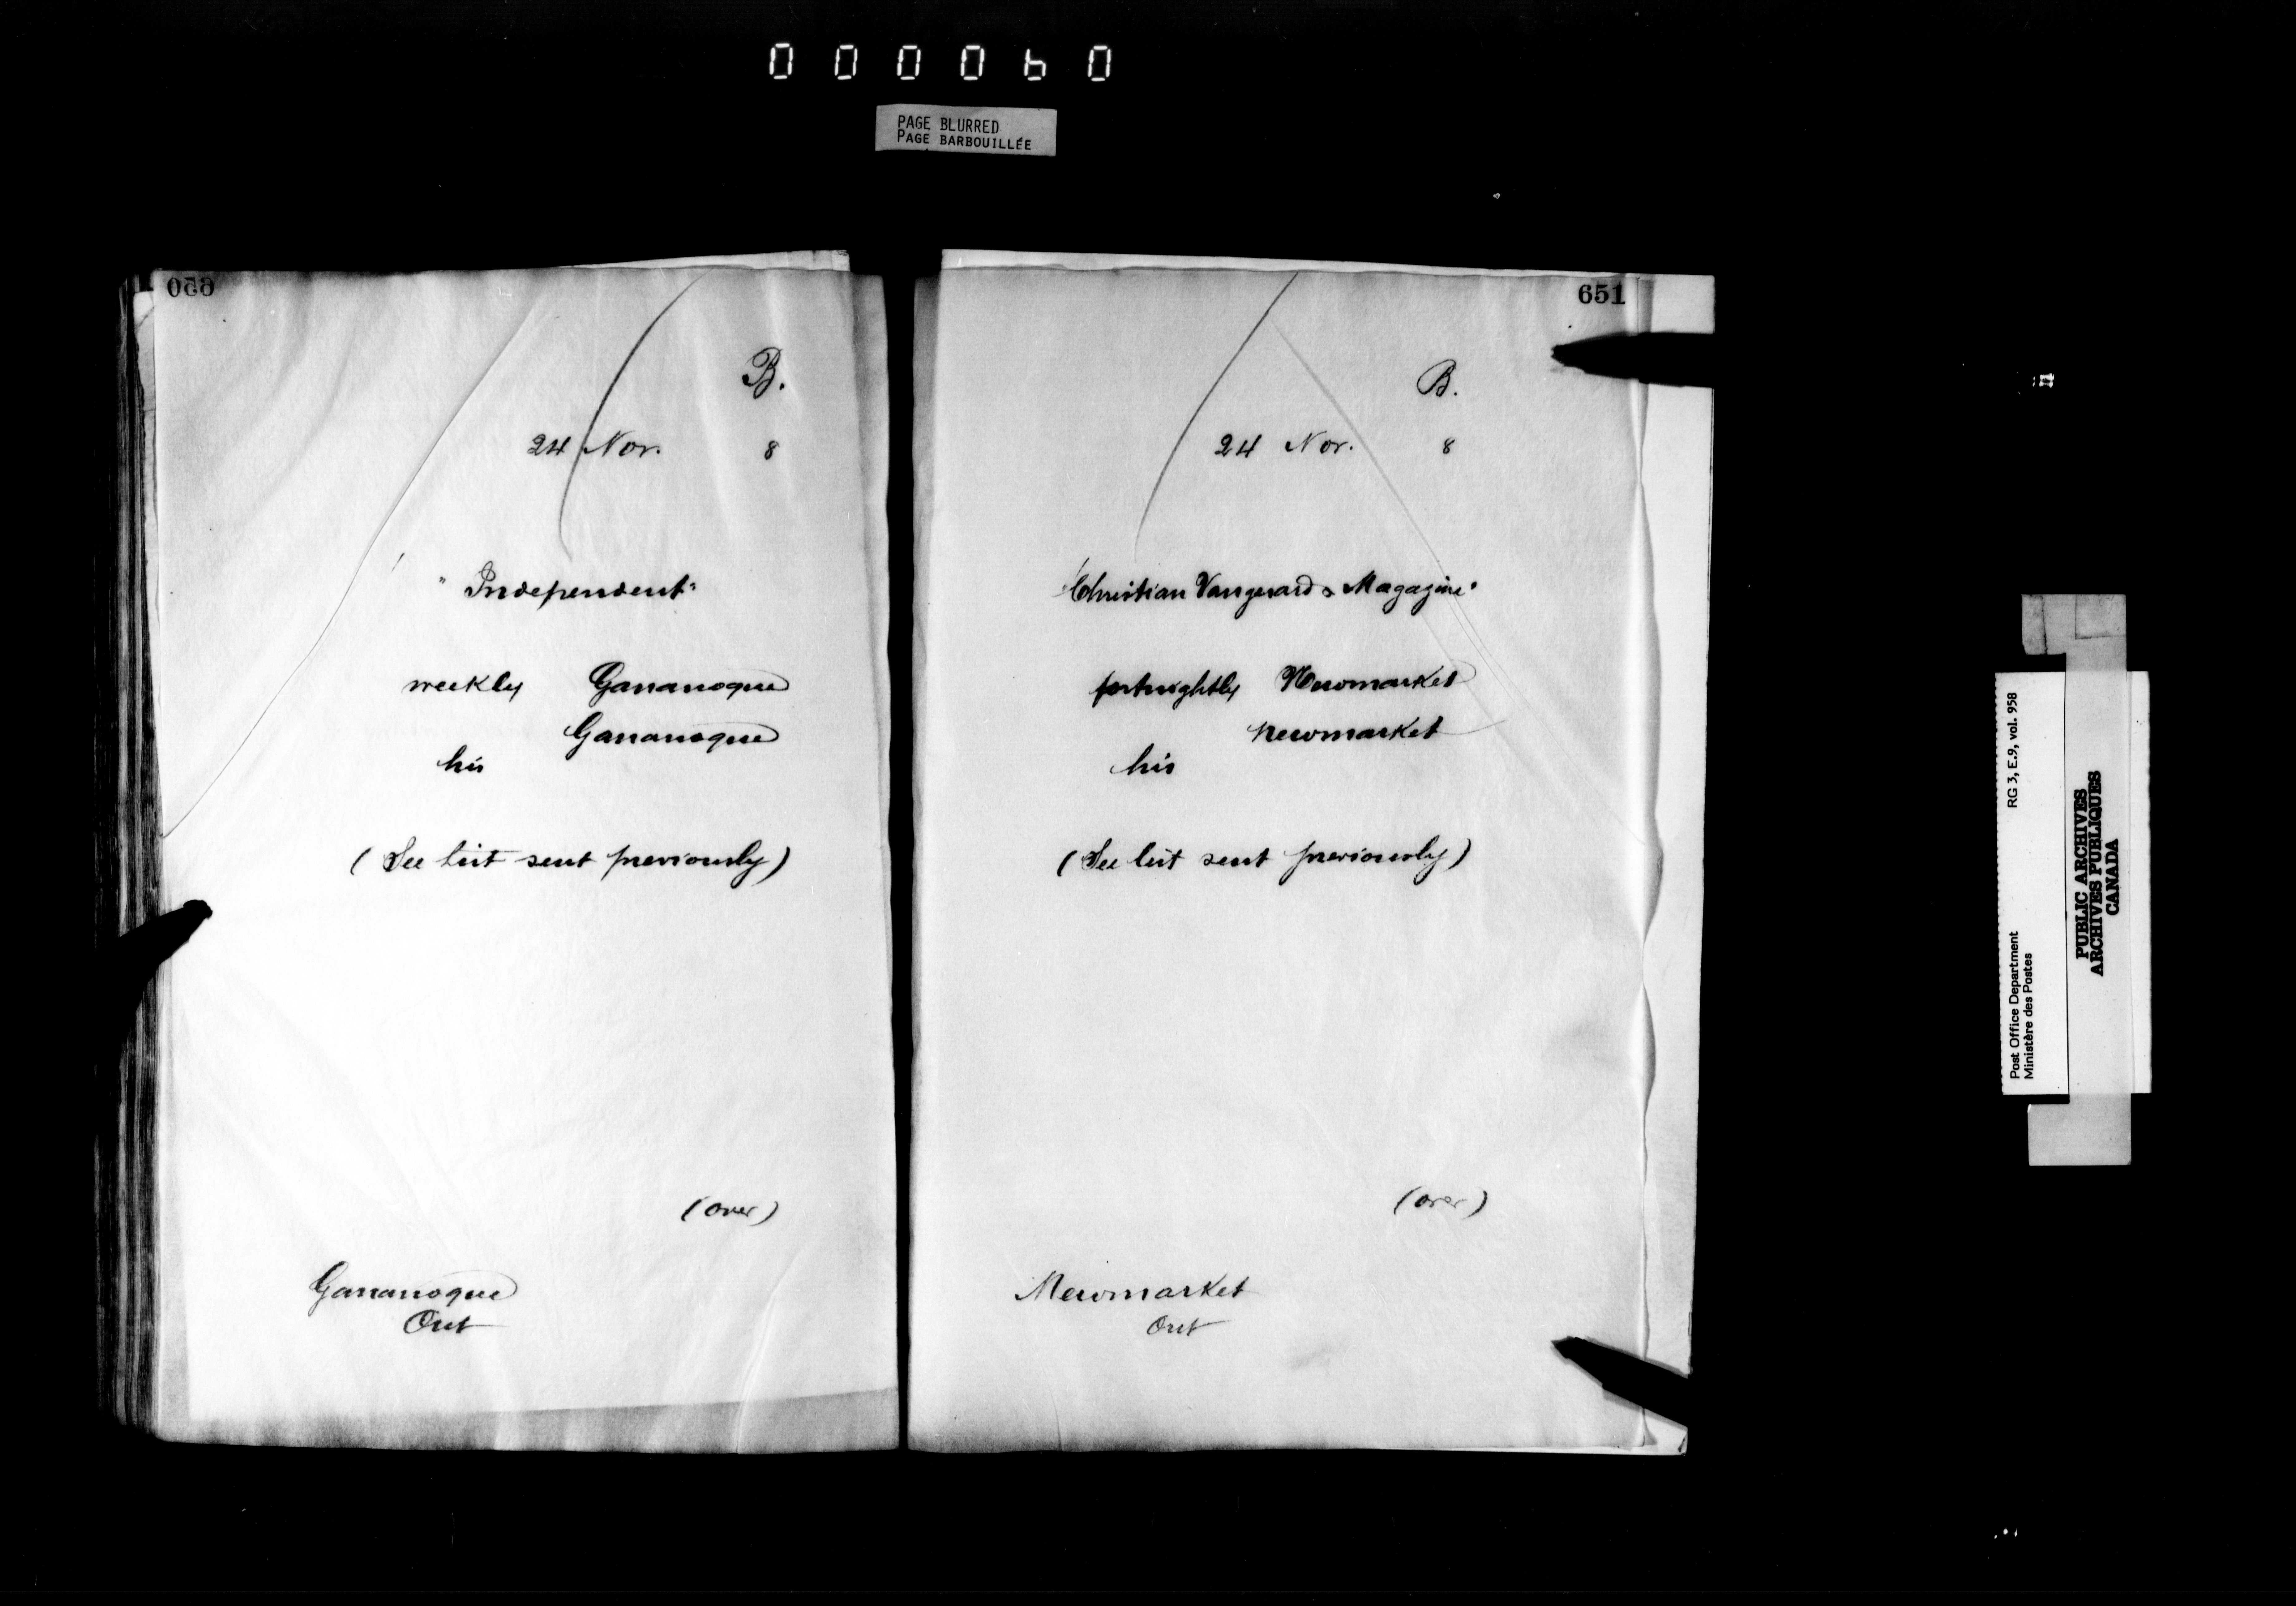 000060
PAGE BLURRED
PAGE BARBOUILLÉE
650
B.
24 Nov. 8
"Independent"
weekly Gananoque
Gananoque
his
(See list sent previously)
(over)
Gananoque
Ont
651
B.
24 Nov. 8
"Christian Vanguard & Magazine"
fortnightly Newmarket
Newmarket
his
(See list sent previously)
(over)
Newmarket
Ont
Post Office Department
Ministère des Postes
RG 3, E.9, vol. 958
PUBLIC ARCHIVES
ARCHIVES PUBLIQUES
CANADA